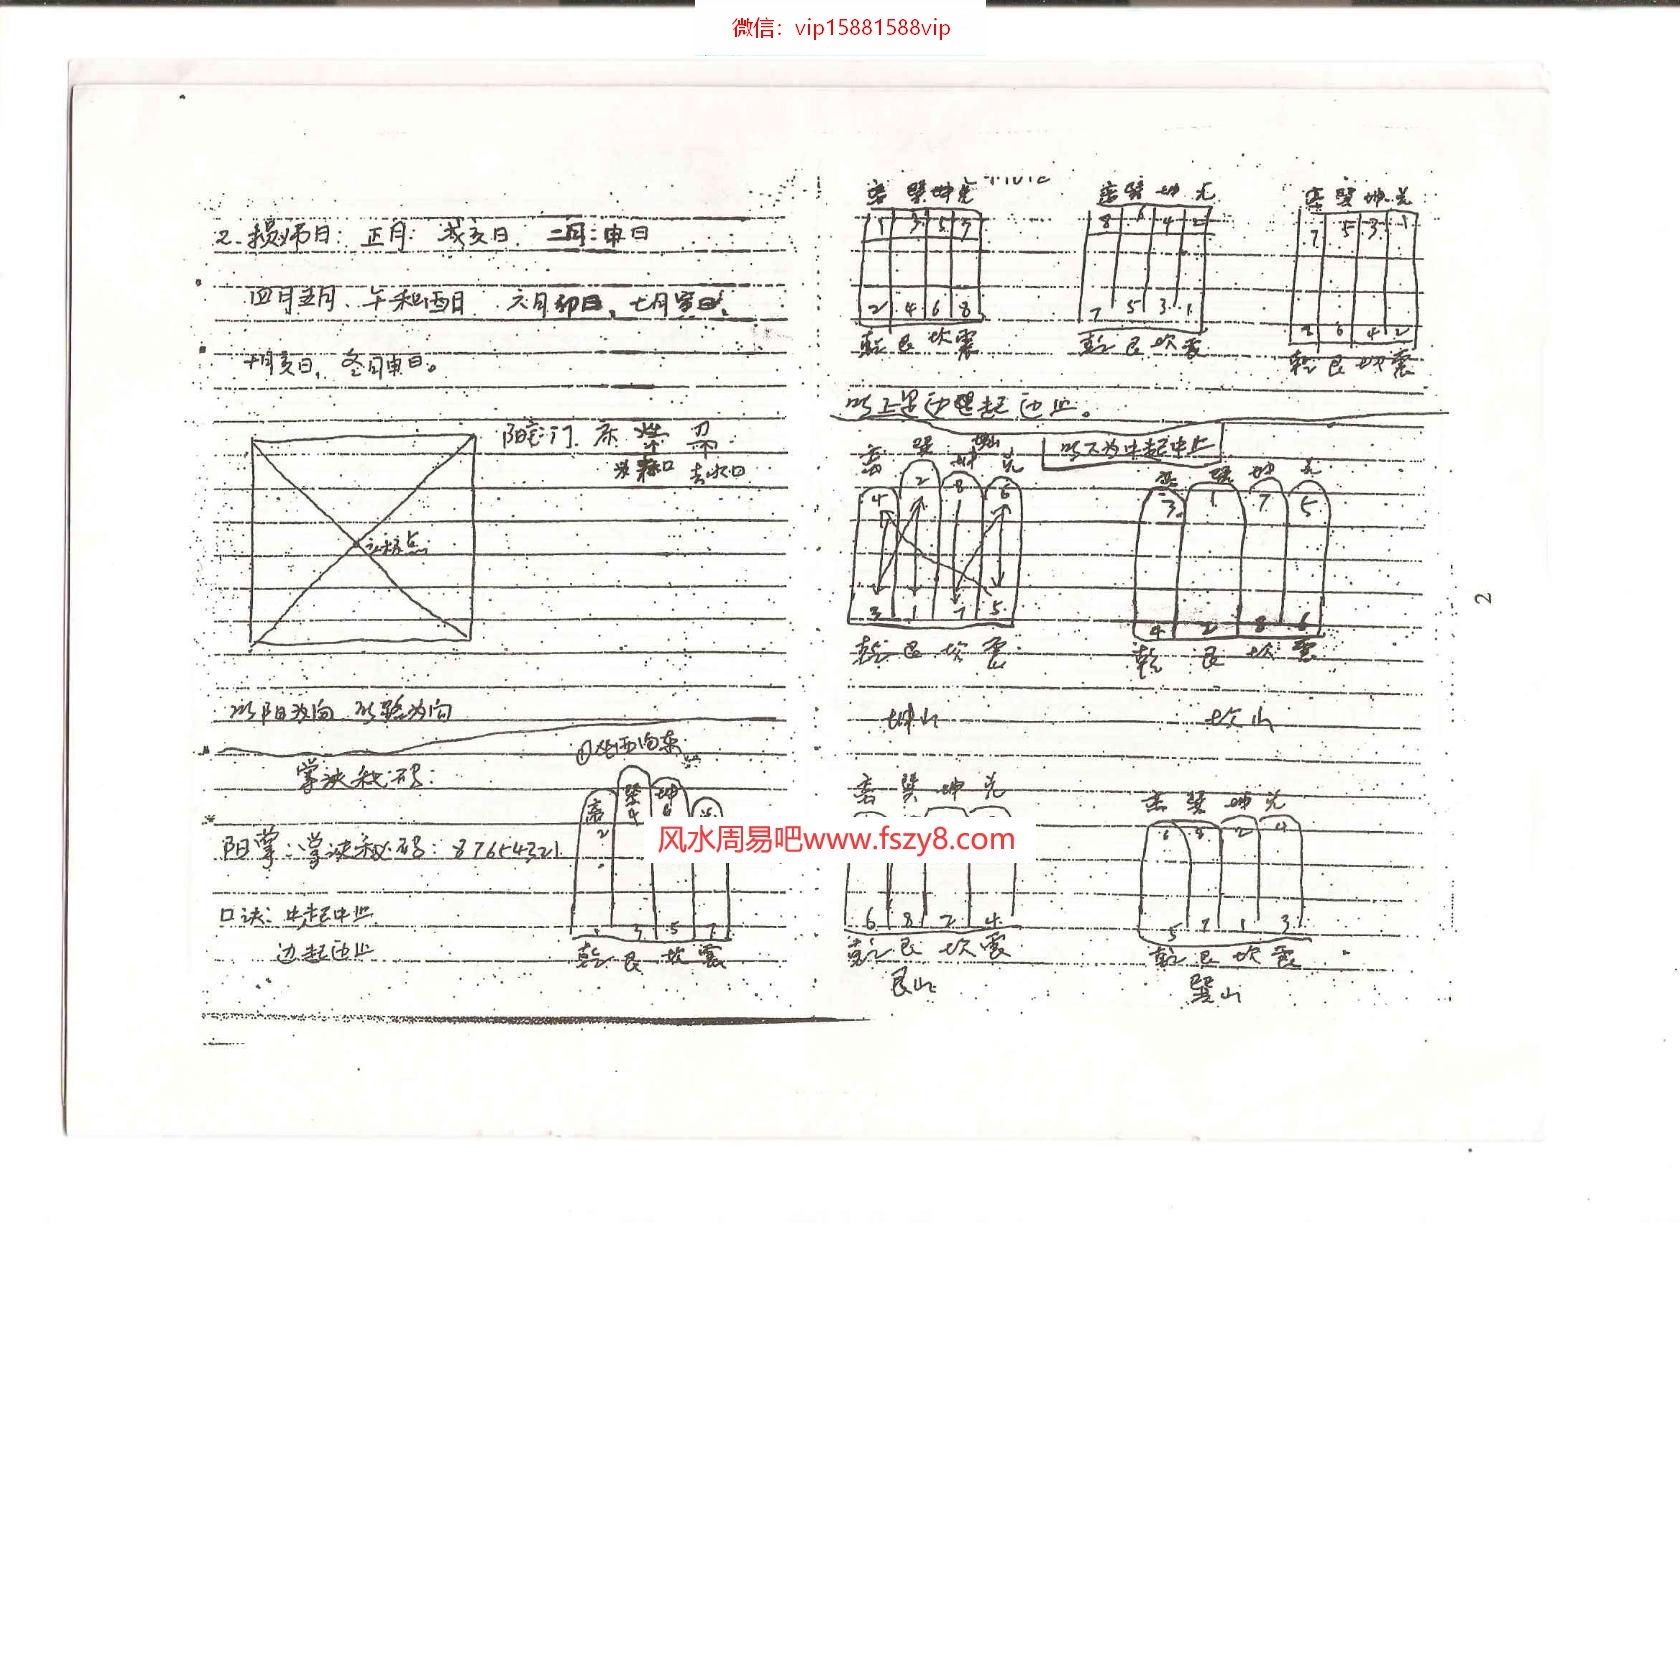 微信：vip15881588vip
2. 损师日：正月：戌亥日 二月：申日
四月五月、午和酉日 六月卯日、七月寅日、
十月亥日，冬月申日。
阳宅：门 床
去水口
立极点
以阳为向
掌决秘码：
①坐西向东
离 巽 坤
2 4 6
阳掌：掌决秘码：87654321
口诀：中起中止
边起边止
1 3 5 7
乾 艮 坎 震
离 巽 坤 兑
1 3 5 7
2 4 6 8
乾 艮 坎 震
离 巽 坤 兑
8 6 4 2
7 5 3 1
乾 艮 坎 震
离 巽 坤 兑
7 5 3 1
6 4 2
乾 艮 坎 震
以上是边起边止。
以下为中起中止
离 巽 坤 兑
4 2 8 6
3 1 7 5
乾 艮 坎 震
坤山
离 巽 坤 兑
3 1 7 5
4 2 8 6
乾 艮 坎 震
坎山
离 巽 坤 兑
6 8 2 4
乾 艮 坎 震
艮山
离 巽 坤 兑
6 8 2 4
5 7 1 3
乾 艮 坎 震
巽山
风水周易吧www.fszy8.com
2